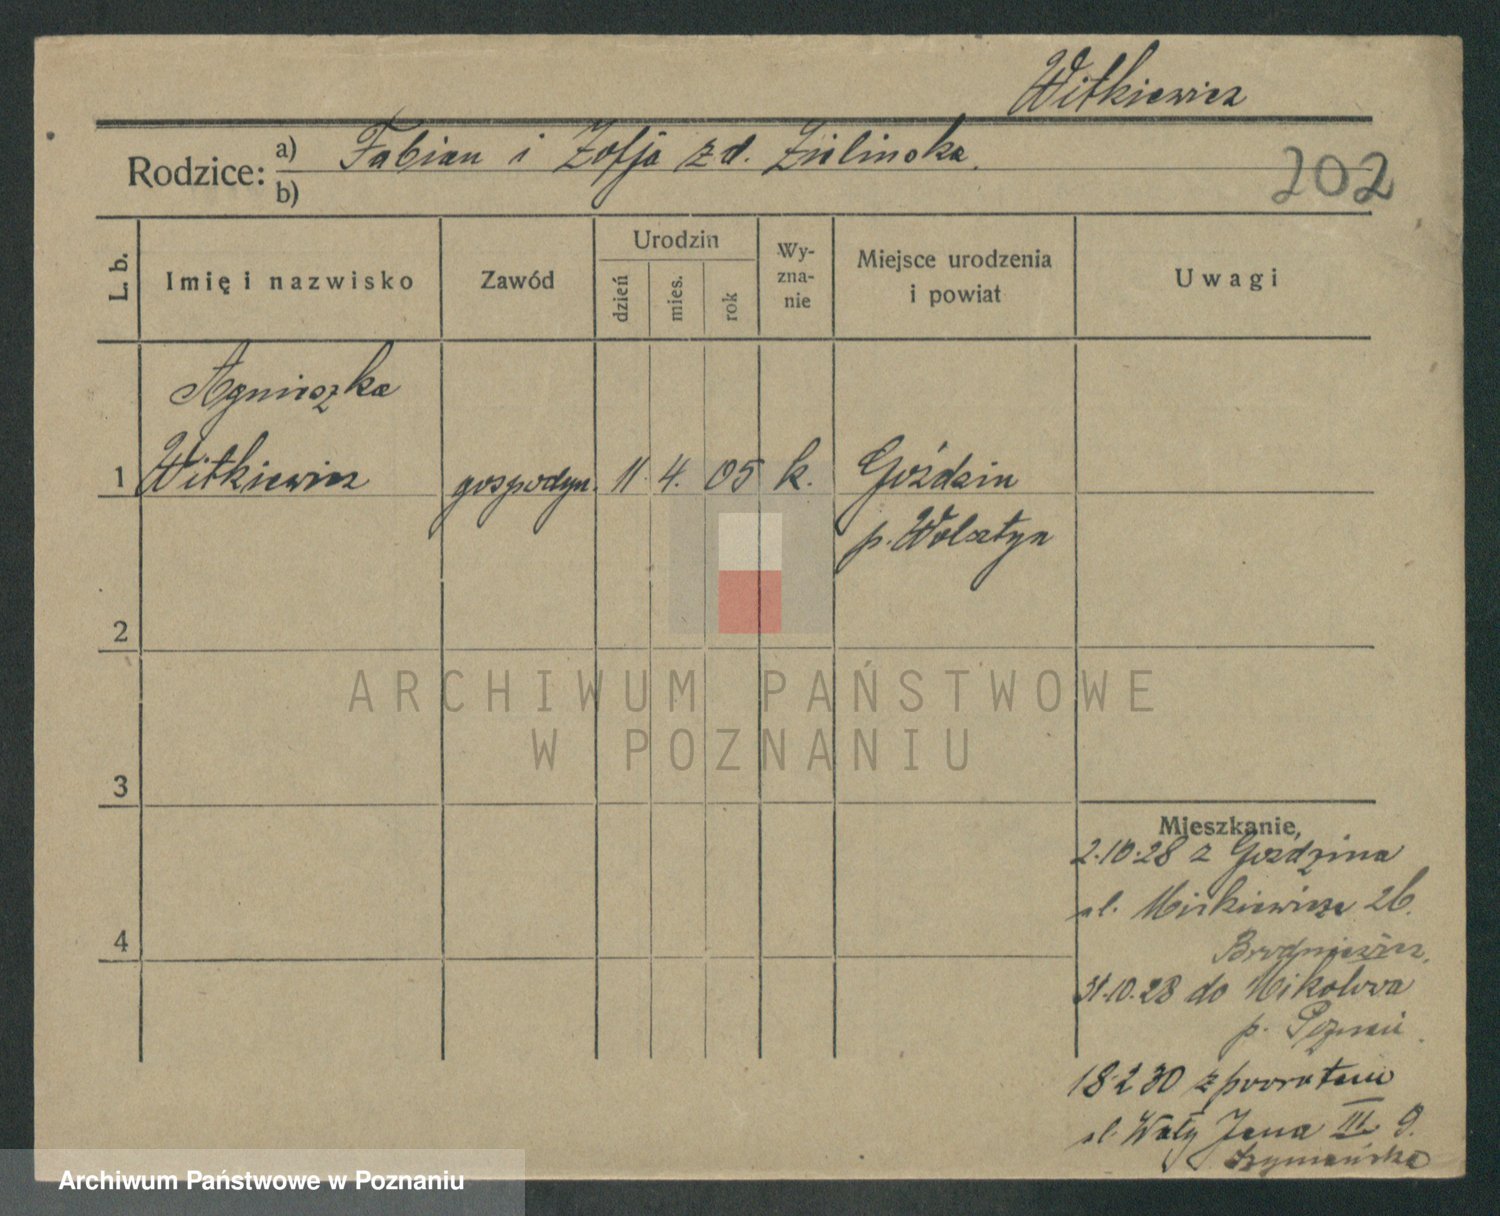 Witkiewicz
Rodzice: a) Fabian i Zofja z d. Zielinska.
b)
202
L. b.
Imię i nazwisko
Zawód
Urodzin
dzień
mies.
rok
Wy-
zna-
nie
Miejsce urodzenia
i powiat
Uwagi
Agnieszka
1 Witkiewicz gospodyn. 11. 4. 05 k. Goździn
p. Wolsztyn
2
3
4
Mieszkanie,
2.10.28 z Goździna
ul. Mickiewicza 26.
Brodniewicz.
31.10.28 do
p. Poznań
18.2 30 z powrotem
ul. Wały Jana III. 9.
Szymańska
ARCHIWUM PAŃSTWOWE
W POZNANIU
Archiwum Państwowe w Poznaniu